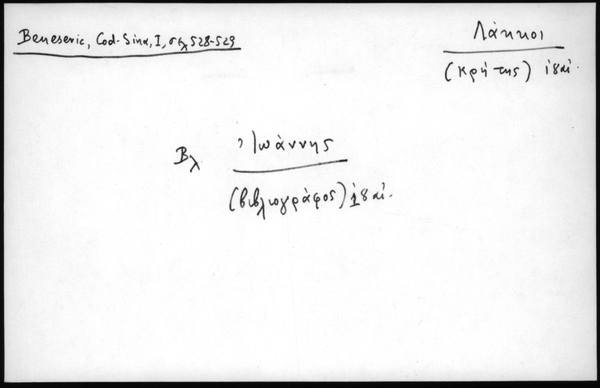 Beneseric, Cod-Sina, I, σελ 528-529
Λάκκοι
(Κρήτης) ιδ΄αἰ.
Βλ Ἰωάννης
(βιβλιογράφος) ιδ΄αἰ.